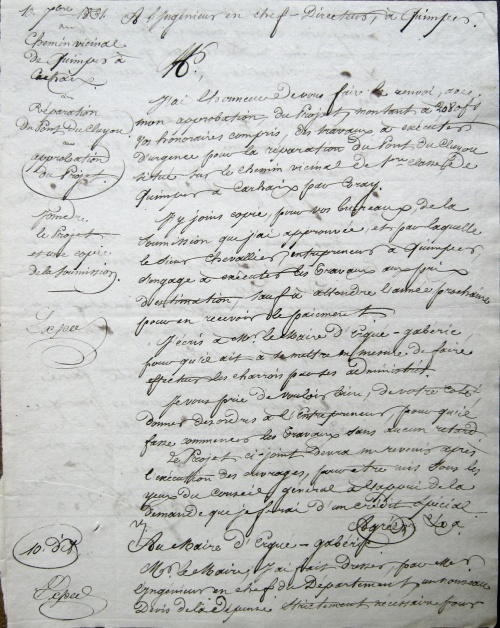 1831. A l'Ingénieur en chef-Directeur, à Quimper.
Chemin vicinal
de Quimper à
Carhaix
Réparation
du Pont du Cleuyou
approbation
du Projet.
joindre
le Projet
et une copie
de la soumission.
Mr,
J'ai l'honneur de vous faire le renvoi, avec
mon approbation du Projet, montant à 208
vos honoraires compris, des travaux à exécuter
d'urgence pour la réparation du Pont du Cleuyou
situé sur le chemin vicinal de 1re classe de
Quimper à Carhaix par Coray.
J'y joins copie, pour vos bureaux, de la
soumission que j'ai approuvée, et par laquelle
le Sieur Chevallier entrepreneur à Quimper
s'engage à exécuter les travaux aux prix
d'estimation, sauf à attendre l'année prochaine
pour en recevoir le paiement.
J'écris à Mr. le Maire d'Ergué-gaberic,
pour qu'il ait à se mettre en mesure de faire
effectuer les charrois par ses administrés.
Je vous prie de vouloir bien, de votre côté,
donner des ordres à l'Entrepreneur pour qu'il
fasse commencer les travaux sans aucun retard.
Le Projet ci-joint devra me revenir après
l'exécution des ouvrages, pour être mis sous les
yeux du Conseil général à l'appui de la
demande que je ferai d'un crédit spécial.
Agréez
10. d°
Au Maire d'Ergué-gaberic
Mr. le Maire, j'ai fait dresser, par Mr.
l'Ingénieur en chef du Département, un nouveau
Devis de la dépense strictement nécessaire pour